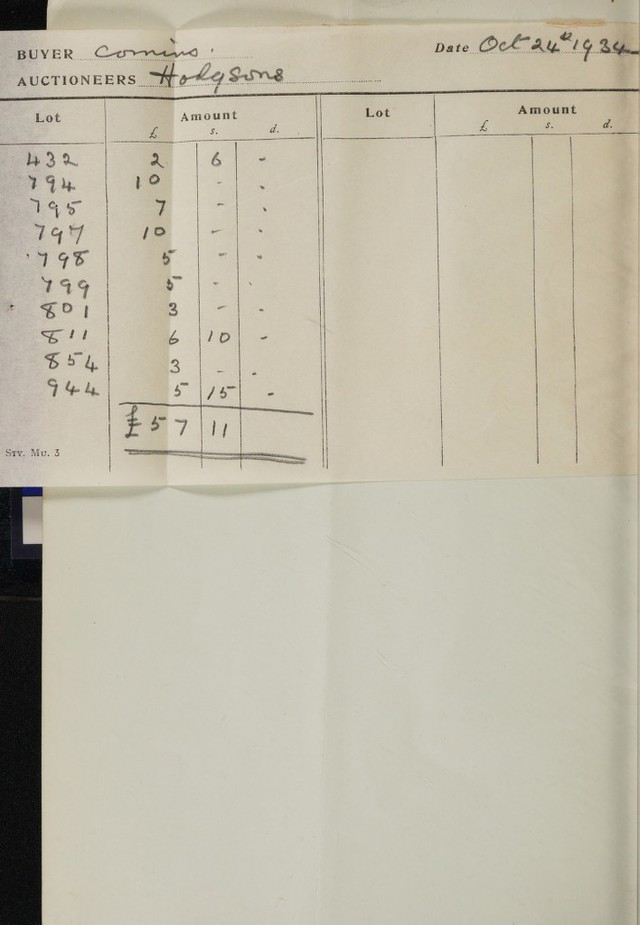 BUYER Comins. Date Oct 24th 1934
AUCTIONEERS Hodgsons
Lot Amount Lot Amount
£ s. d. £ s. d.
432 2 6 -
794 10 - -
795 7 - -
797 10 - -
798 5 - -
799 5 - -
801 3 - -
811 6 10 -
854 3 - -
944 5 15 -
£57 11
STY. MU. 3